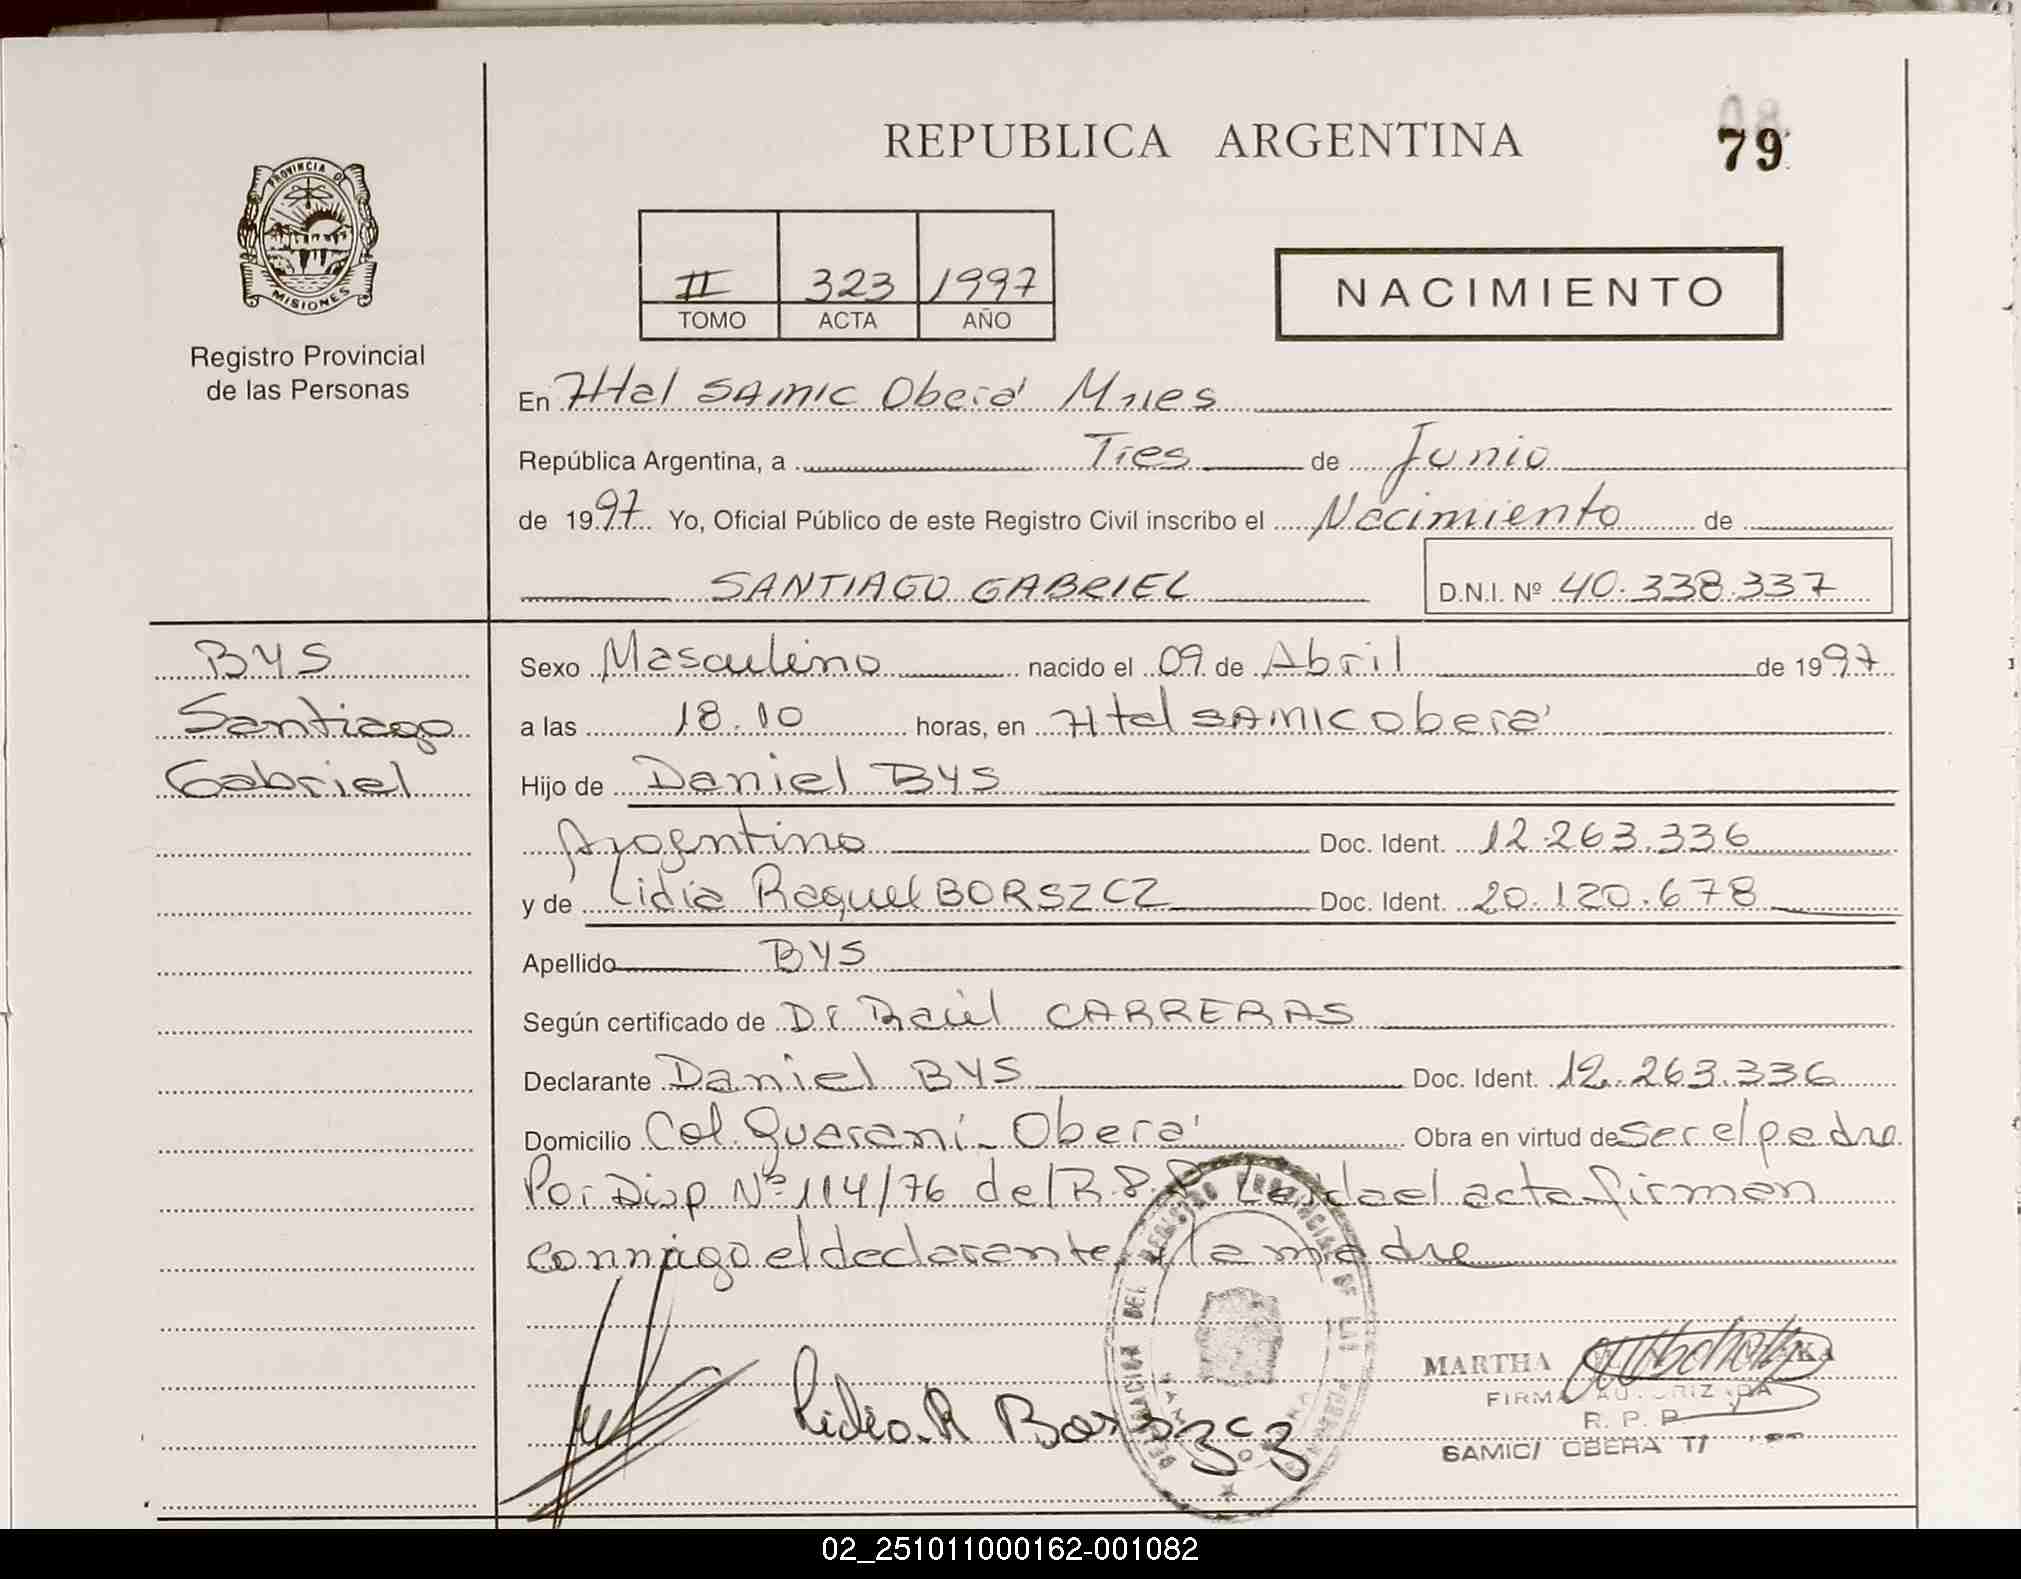 REPUBLICA ARGENTINA
79
PROVINCIA DE
MISIONES
Registro Provincial
de las Personas
II 323 1997
TOMO ACTA AÑO
NACIMIENTO
En Htal SAMIC Oberá Mnes
República Argentina, a Tres de Junio
de 1997 Yo, Oficial Público de este Registro Civil inscribo el Nacimiento de
SANTIAGO GABRIEL D.N.I. Nº 40.338.337
BYS
Santiago
Gabriel
Sexo Masculino nacido el 09 de Abril de 1997
a las 18.10 horas, en Htal SAMIC Oberá
Hijo de Daniel BYS
Argentino Doc. Ident. 12.263.336
y de Lidia Raquel BORSZCZ Doc. Ident. 20.120.678
Apellido BYS
Según certificado de Dr Raúl CARRERAS
Declarante Daniel BYS Doc. Ident. 12.263.336
Domicilio Col Guaraní - Oberá Obra en virtud de ser el padre
Por Disp Nº 114/76 del R.P.P Leída el acta firman
conmigo el declarante y la madre
Lidia R Borszcz
MARTHA
FIRMA AUTORIZADA
R. P. P.
SAMIC/ OBERA
02_251011000162-001082